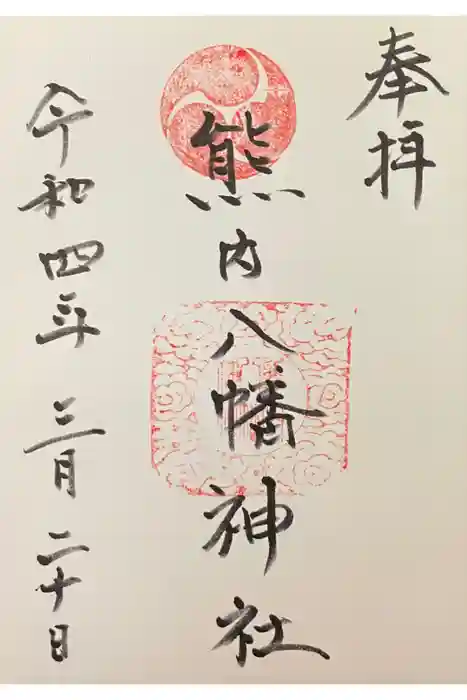 奉拝
熊内八幡神社
令和四年 三月 二十日